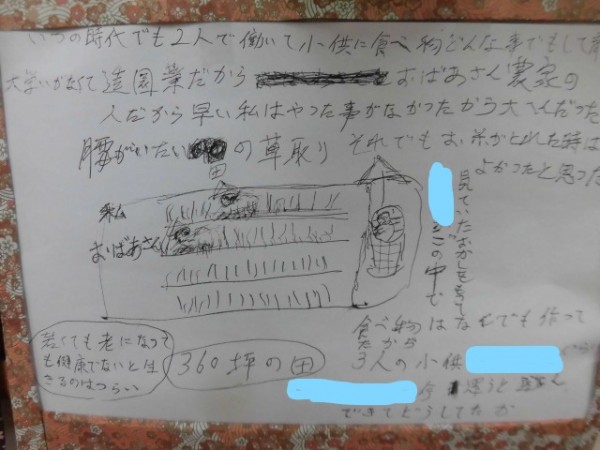 いつの時代でも2人で働いて小供に食べ物どんな事でもして
大学いかなくて造園業だから おばあさん農家の
人だから早い私はやった事がなかったから大へんだった
腰がいたい の草取り それでもお米がとれた時は
田
よかったと思った
私
おばあさん
見ていた
かごの中で
食べ物はなんでも作って
だから
3人の小供
若くても老になって
も健康でないと生
きるのはつらい
360坪の田
できてどうしてたか